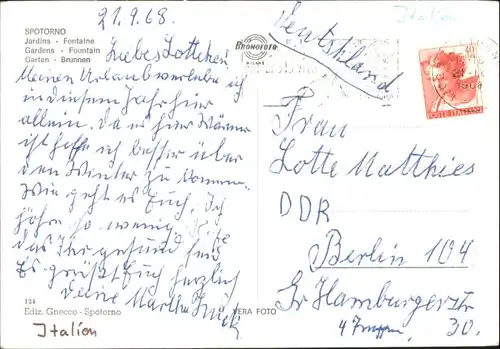 21.9.68.
SPOTORNO
Jardins - Fontaine
Gardens - Fountain
Garten - Brunnen
Liebes Lottchen
Meinen Urlaub verlebe ich
in diesem Jahr hier
allein. Da es hier wärmer
ist hoffe ich besser über
den Winter zu kommen.
Wie geht es Euch. Ich
höre so wenig.
das Ihr gesund seid
Es grüßt Euch herzlich
Deine Martha
124
Ediz. Gnecco - Spotorno
VERA FOTO
Italien
BROMOFOTO
MILANO
Deutschland
Italien
40
POSTE ITALIANE
Frau
Lotte Matthies
DDR
Berlin 104
Gr Hamburgerstr
4 Treppen 30.